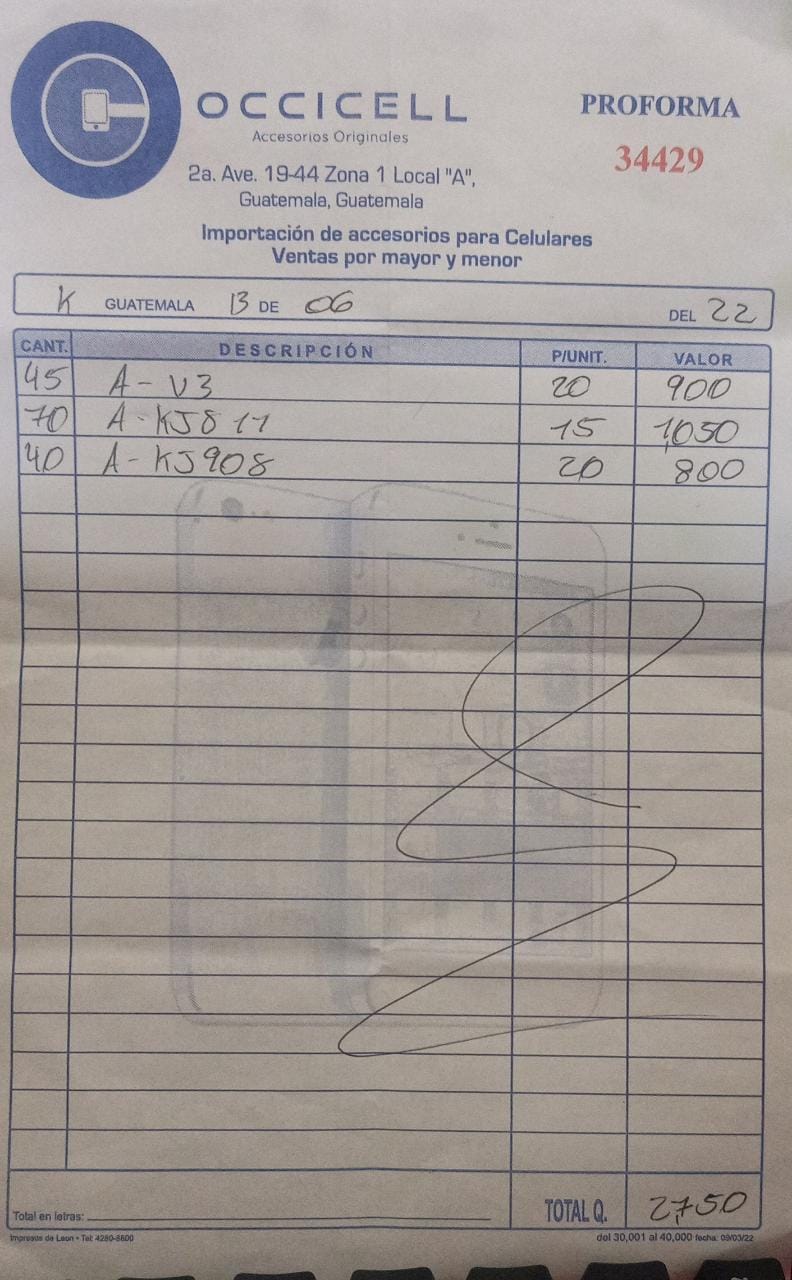 OCCICELL
Accesorios Originales
2a. Ave. 19-44 Zona 1 Local "A",
Guatemala, Guatemala
Importación de accesorios para Celulares
Ventas por mayor y menor
PROFORMA
34429
K GUATEMALA 13 DE 06 DEL 22
CANT. DESCRIPCIÓN P/UNIT. VALOR
45 A - V3 20 900
70 A - KJ811 15 1,050
40 A - KJ908 20 800
Total en letras: TOTAL Q. 2,750
Impresos de Leon • Tel: 4280-8600 del 30,001 al 40,000 fecha: 09/03/22